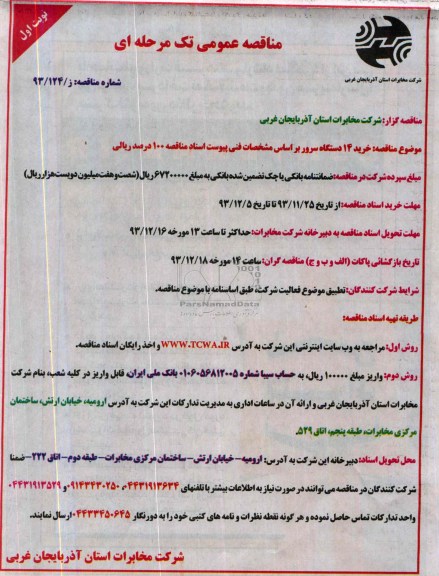 نوبت اول
مناقصه عمومی تک مرحله ای
شرکت مخابرات استان آذربایجان غربی
شماره مناقصه: ز/۹۳/۱۲۴
مناقصه گزار: شرکت مخابرات استان آذربایجان غربی
موضوع مناقصه: خرید ۱۴ دستگاه سرور بر اساس مشخصات فنی پیوست اسناد مناقصه ۱۰۰ درصد ریالی
مبلغ سپرده شرکت در مناقصه: ضمانتنامه بانکی یا چک تضمین شده بانکی به مبلغ ۶۷۲۰۰۰۰۰ ریال (شصت و هفت میلیون دویست هزار ریال)
مهلت خرید اسناد مناقصه: از تاریخ ۹۳/۱۱/۲۵ تا تاریخ ۹۳/۱۲/۵
مهلت تحویل اسناد مناقصه به دبیرخانه شرکت مخابرات: حداکثر تا ساعت ۱۳ مورخه ۹۳/۱۲/۱۶
تاریخ بازگشائی پاکات (الف و ب و ج) مناقصه گران: ساعت ۱۴ مورخه ۹۳/۱۲/۱۸
شرایط شرکت کنندگان: تطبیق موضوع فعالیت شرکت، طبق اساسنامه با موضوع مناقصه.
طریقه تهیه اسناد مناقصه:
روش اول: مراجعه به وب سایت اینترنتی این شرکت به آدرس WWW.TCWA.IR و اخذ رایگان اسناد مناقصه.
روش دوم: واریز مبلغ ۱۰۰۰۰۰ ریال، به حساب سیبا شماره ۰۱۰۶۰۵۶۸۱۲۰۰۵ بانک ملی ایران، قابل واریز در کلیه شعب، بنام شرکت
مخابرات استان آذربایجان غربی و ارائه آن در ساعات اداری به مدیریت تدارکات این شرکت به آدرس ارومیه، خیابان ارتش، ساختمان
مرکزی مخابرات، طبقه پنجم، اتاق ۵۲۹.
محل تحویل اسناد: دبیرخانه این شرکت به آدرس: ارومیه - خیابان ارتش - ساختمان مرکزی مخابرات - طبقه دوم - اتاق ۲۲۲ - ضمنا
شرکت کنندگان در مناقصه می توانند در صورت نیاز به اطلاعات بیشتر با تلفنهای ۰۴۴۳۱۹۱۳۶۳۴، ۰۹۱۴۳۴۳۰۲۵۰ و ۰۴۴۳۱۹۱۳۵۲۹
واحد تدارکات تماس حاصل نموده و هر گونه نقطه نظرات و نامه های کتبی خود را به دورنگار ۰۴۴۳۳۴۵۰۶۴۵ ارسال نمایند.
شرکت مخابرات استان آذربایجان غربی